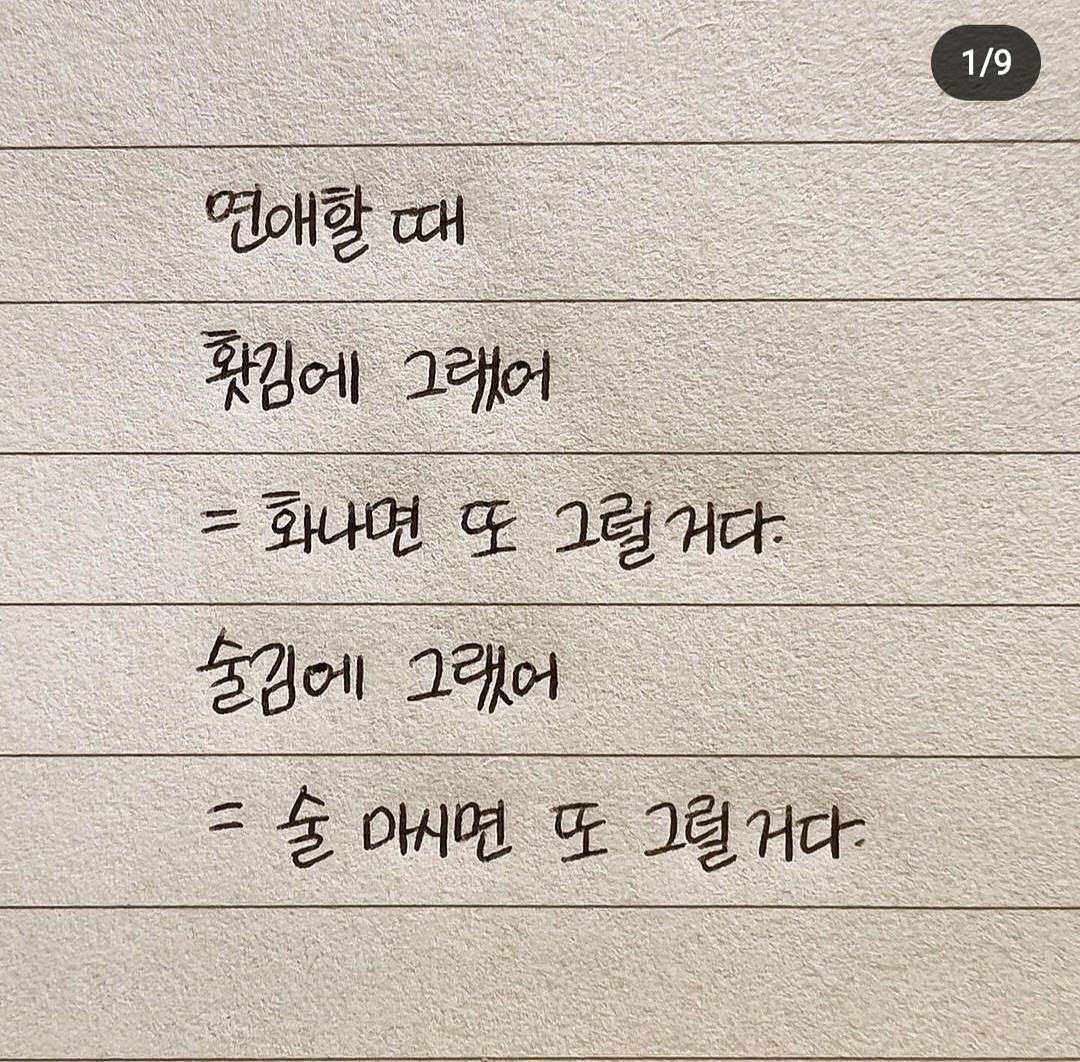 1/9
연애할 때
홧김에 그랬어
= 화나면 또 그럴거다.
술김에 그랬어
= 술 마시면 또 그럴거다.